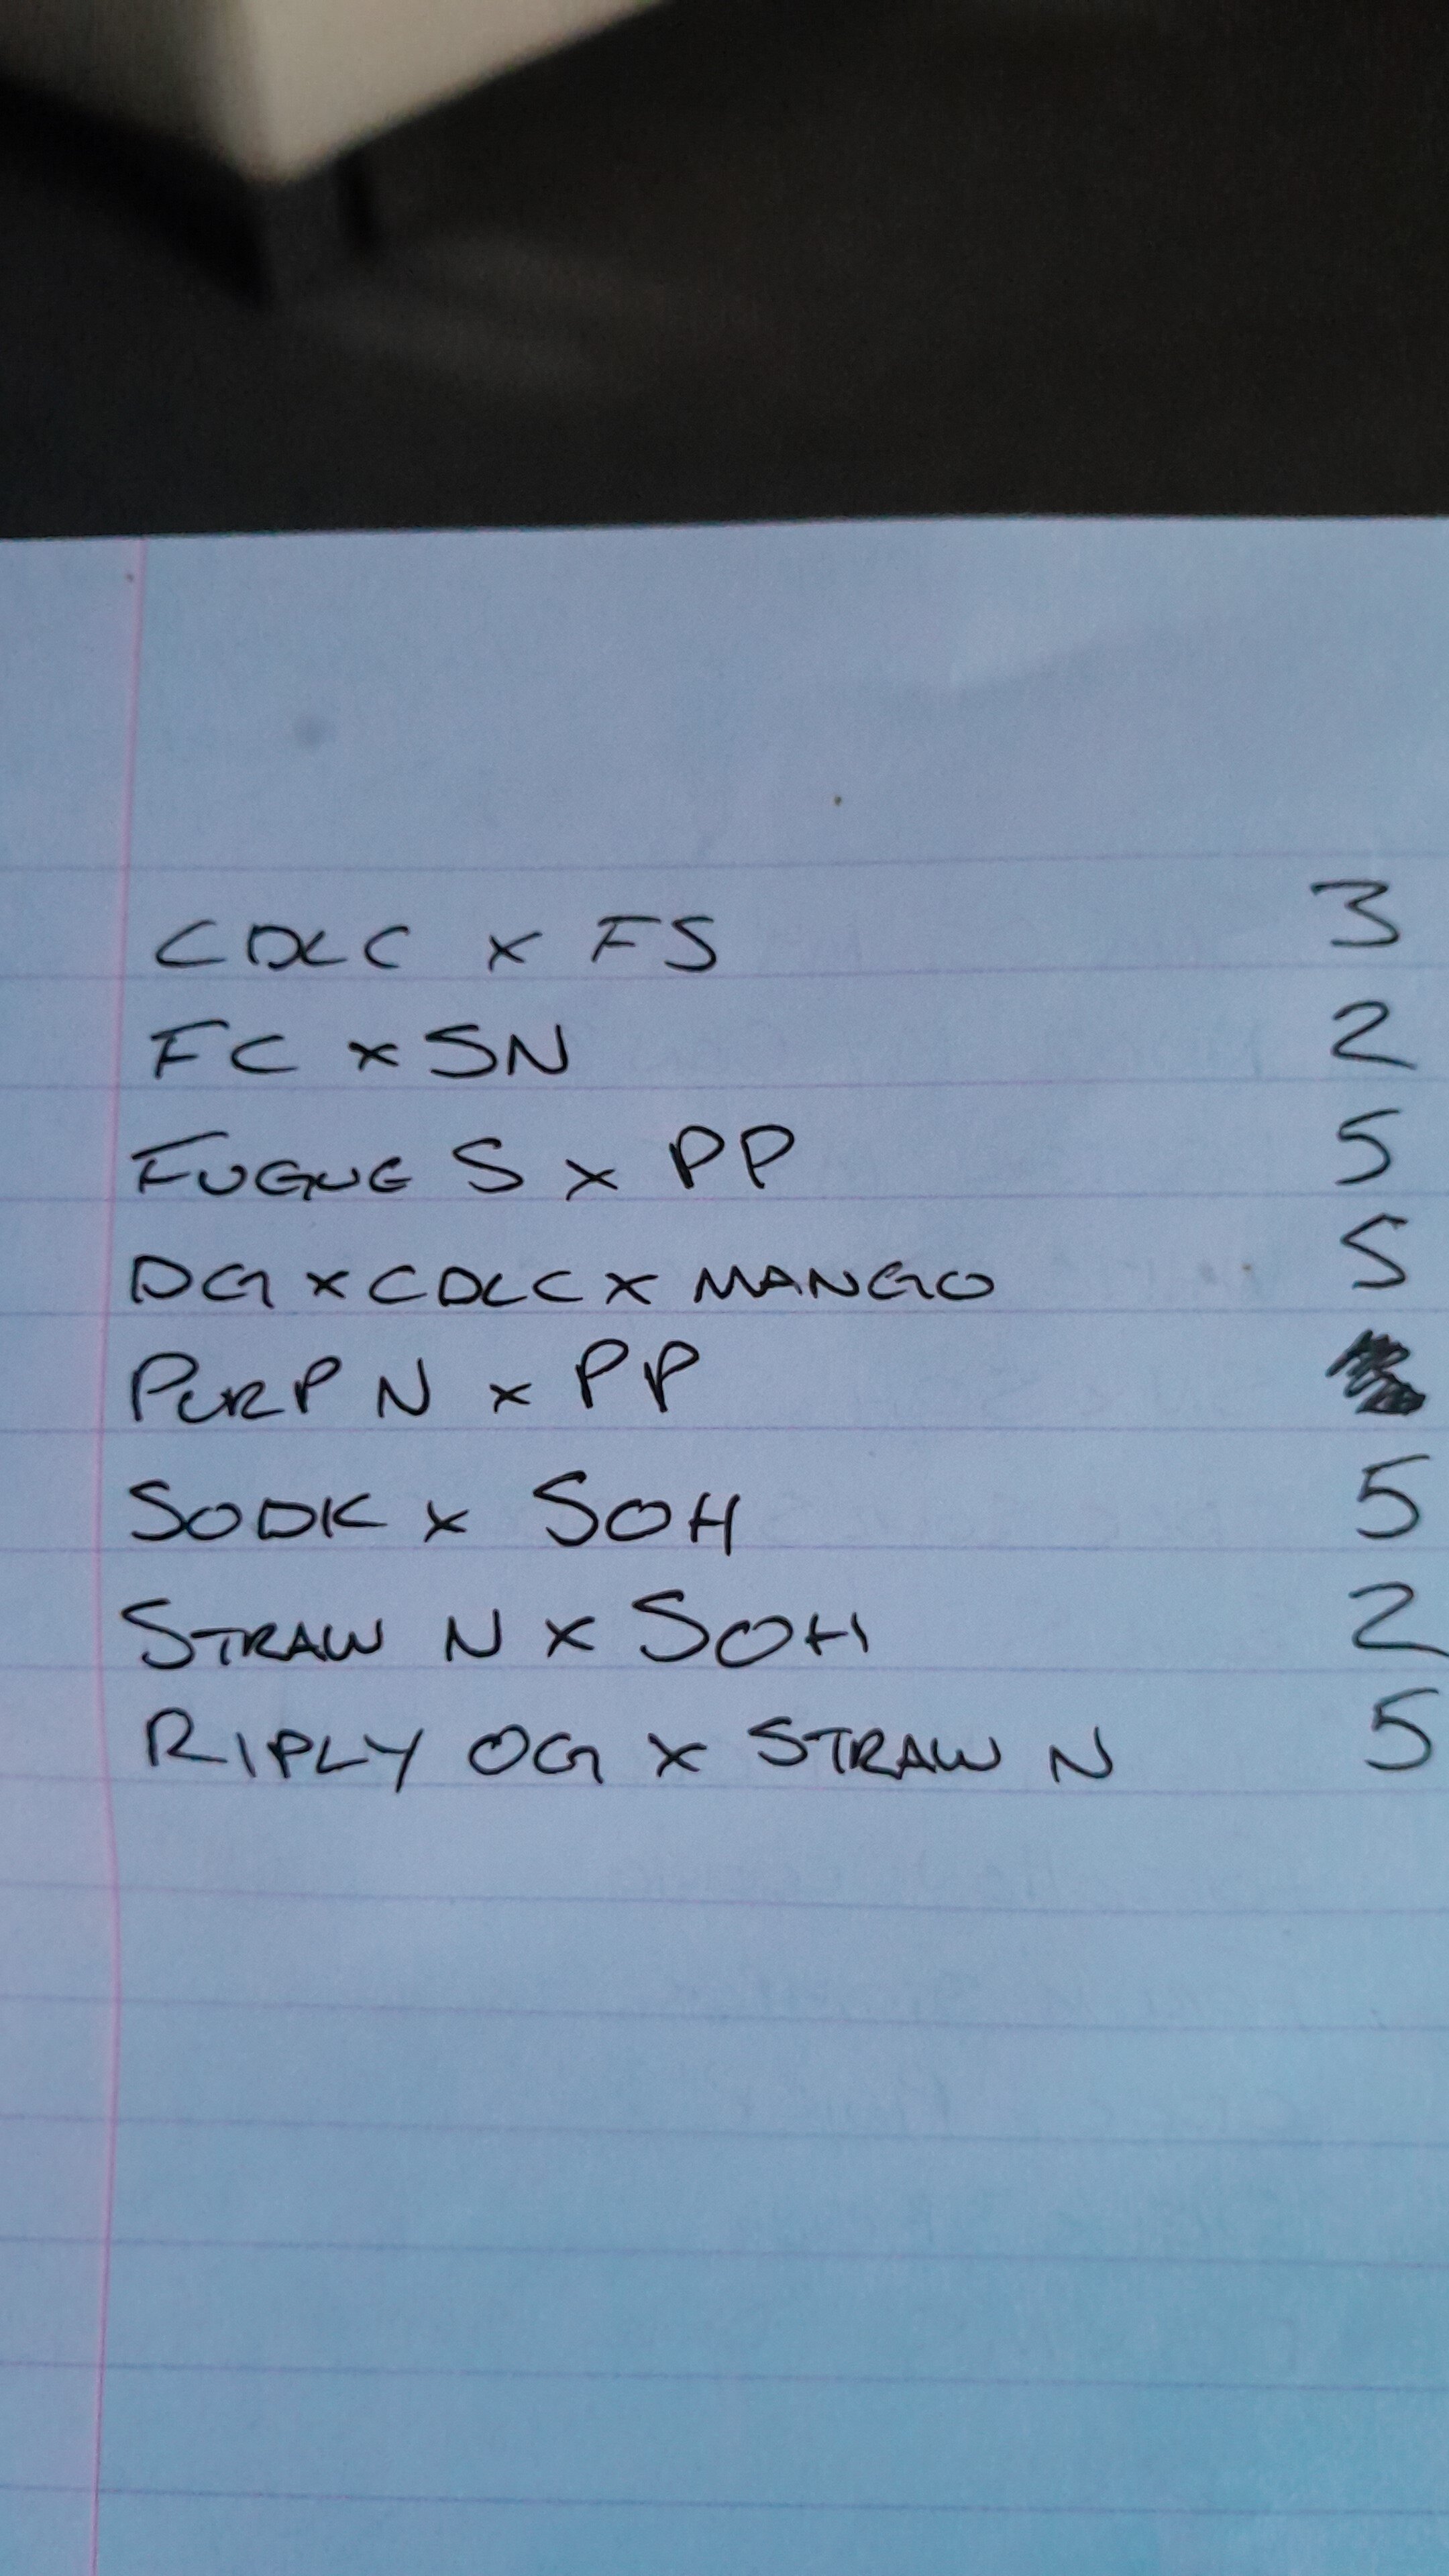 CDLC x FS 3
FC x SN 2
FUGUE S x PP 5
DG x CDLC x MANGO 5
PURP N x PP
SODK x SOH 5
STRAW N x SOH 2
RIPLY OG x STRAW N 5